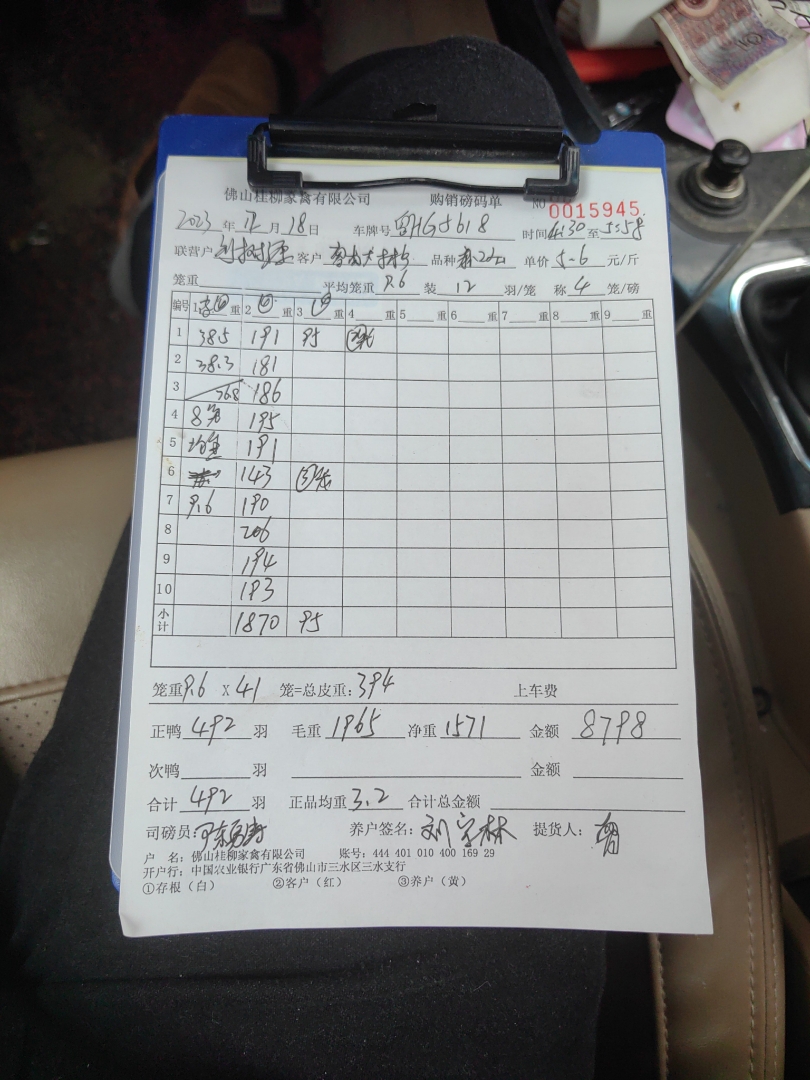 佛山桂柳家禽有限公司 购销磅码单 NO 0015945
2023 年 12 月 18 日 车牌号 粤HG5618 时间 4:30 至 5:58
联营户 客户 品种 单价 5-6 元/斤
笼重 平均笼重 9.6 装 12 羽/笼 称 4 笼/磅
编号 1 重 2 重 3 重 4 重 5 重 6 重 7 重 8 重 9 重
1 38.5 191 95
2 38.3 181
3 76.8 186
4 8 195
5 均重 191
6 143
7 9.6 190
8 206
9 194
10 193
小计 1870 95
笼重 9.6 X 41 笼=总皮重: 394 上车费
正鸭 492 羽 毛重 1965 净重 1571 金额 8798
次鸭 羽 金额
合计 492 羽 正品均重 3.2 合计总金额
司磅员: 养户签名: 刘字林 提货人:
户 名: 佛山桂柳家禽有限公司 账号: 444 401 010 400 169 29
开户行: 中国农业银行广东省佛山市三水区三水支行
①存根(白) ②客户(红) ③养户(黄)